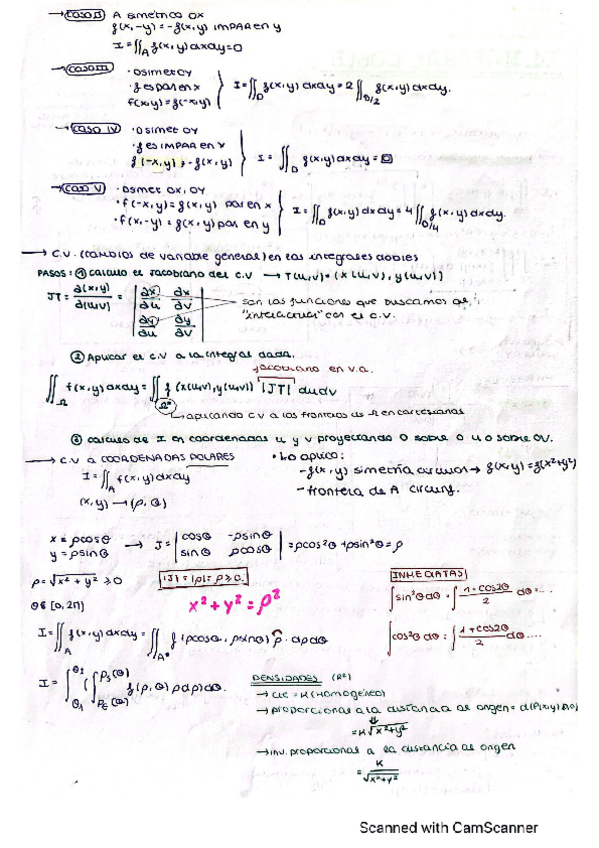 → CASO II A simétrico OX
f(x,-y) = -f(x,y) IMPAR en y
I = ∬_A f(x,y) dxdy = 0
→ CASO III · D simet OY
· f es par en x
f(x,y) = f(-x,y)
I = ∬_D f(x,y) dxdy = 2 ∬_{D/2} f(x,y) dxdy.
→ CASO IV · D simet OY
· f es IMPAR en x
f(-x,y) = -f(x,y)
I = ∬_D f(x,y) dxdy = 0
→ CASO V · D simet OX, OY
· f(-x,y) = f(x,y) par en x
· f(x,-y) = f(x,y) par en y
I = ∬_D f(x,y) dxdy = 4 ∬_{D/4} f(x,y) dxdy.
→ C.V. (cambios de variable general) en las integrales dobles
PASOS: ① calculo el Jacobiano del C.V → T(u,v) = (x(u,v), y(u,v))
JT = ∂(x,y)/∂(u,v) = | ∂x/∂u ∂x/∂v |
| ∂y/∂u ∂y/∂v |
son las funciones que buscamos al
"interactuar" con el C.V.
② Aplicar el C.V a la integral dada.
Jacobiano en v.a.
∬_Ω f(x,y) dxdy = ∬_{Ω*} f(x(u,v), y(u,v)) |JT| dudv
aplicando C.V a las fronteras de Ω en cartesianas
③ calculo de I en coordenadas u y v proyectando D sobre OU o sobre OV.
→ C.V a COORDENADAS POLARES
· Lo aplico:
I = ∬_A f(x,y) dxdy
- f(x,y) simetría circular → f(x,y) = f(x²+y²)
(x,y) → (ρ,θ)
- frontera de A circunf.
x = ρcosθ
y = ρsinθ
→ J = | cosθ -ρsinθ |
| sinθ ρcosθ | = ρcos²θ + ρsin²θ = ρ
ρ = √x² + y² ≥ 0
|J| = |ρ| = ρ ≥ 0.
INMEDIATAS
θ∈ [0, 2π)
x² + y² = ρ²
∫sin²θdθ = ∫ (1 - cos2θ)/2 dθ = ...
I = ∬_A f(x,y) dxdy = ∬_{A*} f(ρcosθ, ρsinθ) ρ · dρdθ
∫cos²θdθ = ∫ (1 + cos2θ)/2 dθ ...
I = ∫_{θ1}^{θ2} ( ∫_{ρe(θ)}^{ρs(θ)} f(ρ,θ) ρdρ) dθ.
DENSIDADES (R²)
→ cte = K (homogéneo)
→ proporcional a la distancia al origen = d(P(x,y),0)
= K√x²+y²
→ inv. proporcional a la distancia al origen
= K/√x²+y²
Scanned with CamScanner